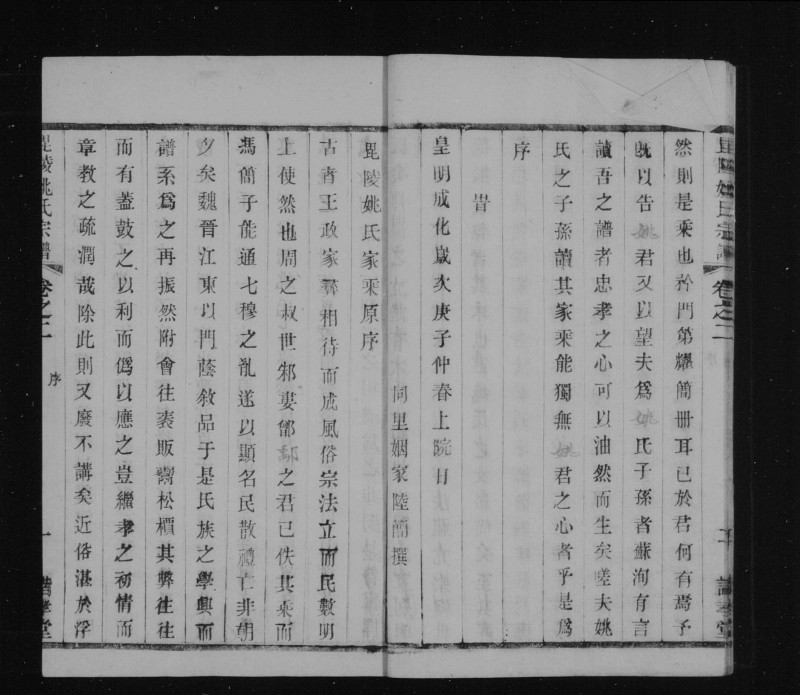 毘陵姚氏宗譜 卷之二
然則是乘也衿門第耀簡冊耳已於君何有焉予
既以告姚君又以望夫爲姚氏子孫者蘇洵有言
讀吾之譜者忠孝之心可以油然而生矣嗟夫姚
氏之子孫讀其家乘能獨無姚君之心者乎是爲
序
旹
皇明成化歲次庚子仲春上院日
同里姻家陸簡撰
毘陵姚氏家乘原序
古者王政家乘相待而成風俗宗法立而民數明
上使然也周之叔世邾婁鄫鄅之君已佚其乘而
馮簡子能通七穆之亂遂以顯名民散禮亡非朝
夕矣魏晉江東以門蔭敘品于是氏族之學興而
譜系爲之再振然附會往哀販鬻松檟其弊往往
而有蓋鼓之以利而僞以應之豈繼孝之初情而
章教之疏濶哉除此則又廢不講矣近俗湛於浮
毘陵姚氏宗譜 卷之二 序 一